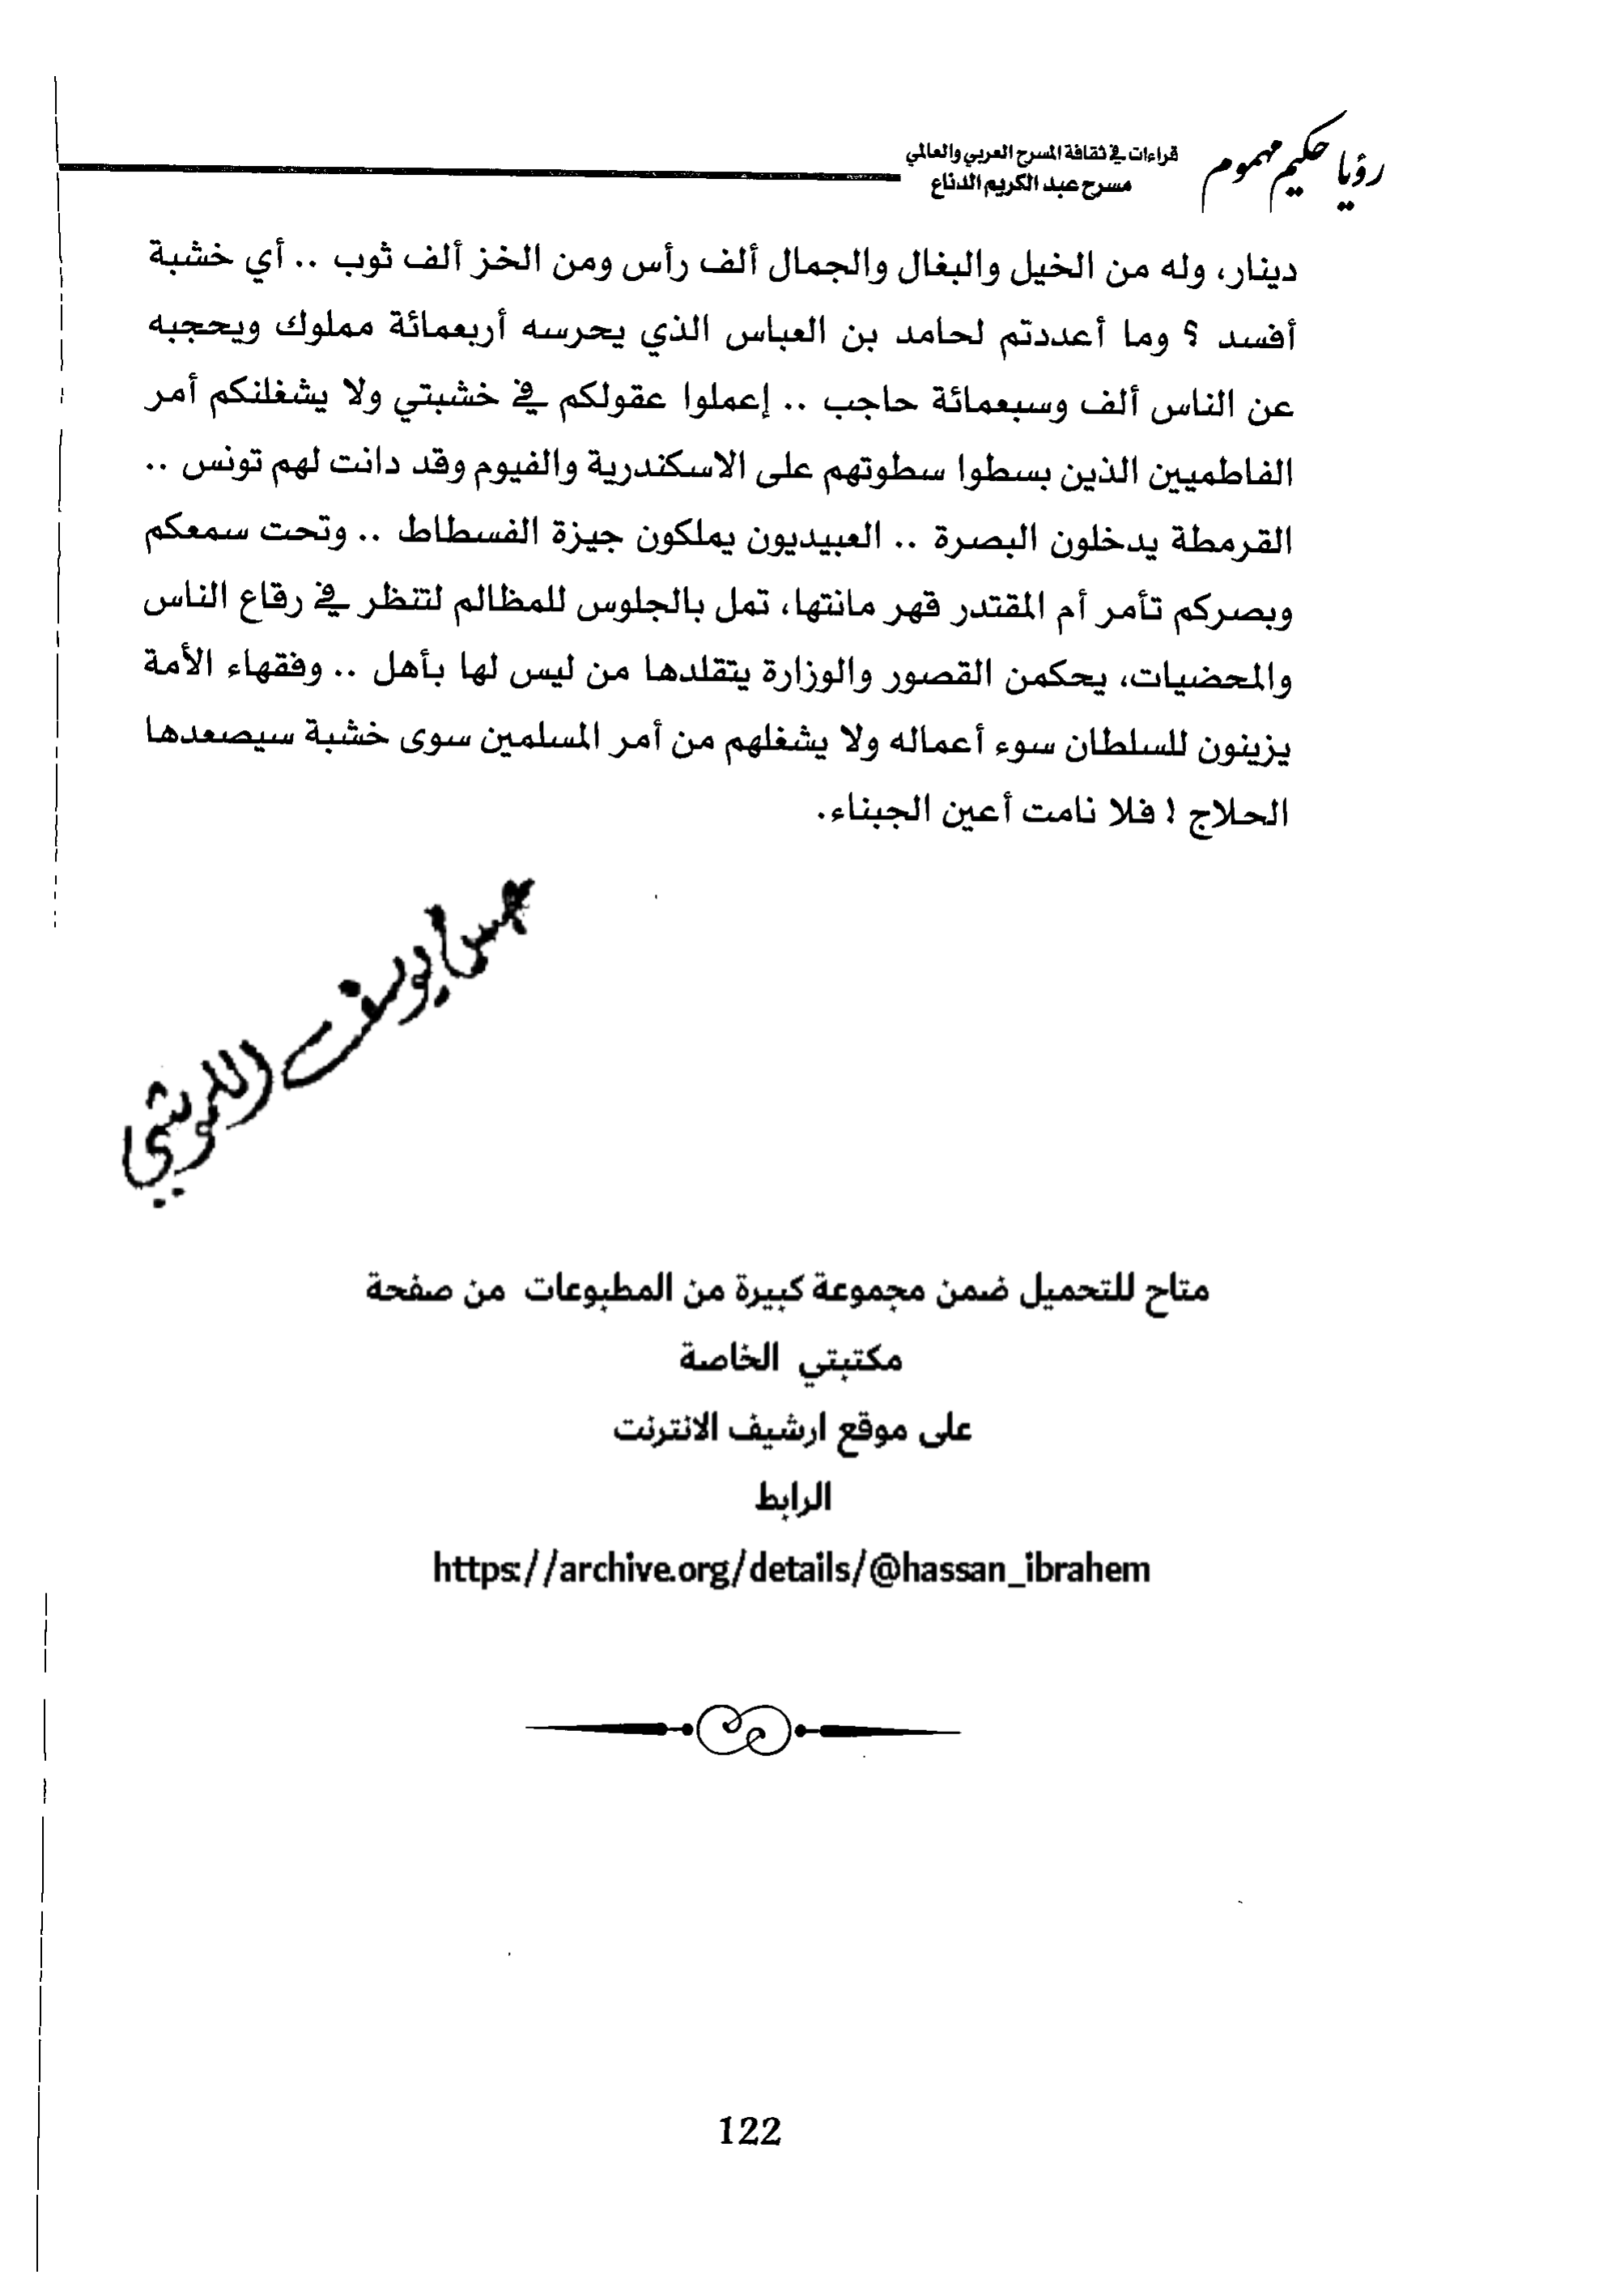 رؤيا حكيم مهموم
قراءات في ثقافة المسرح العربي والعالمي
مسرح عبد الكريم الدناع
دينار، وله من الخيل والبغال والجمال ألف رأس ومن الخز ألف ثوب .. أي خشبة
أفسد ؟ وما أعددتم لحامد بن العباس الذي يحرسه أربعمائة مملوك ويحجبه
عن الناس ألف وسبعمائة حاجب .. إعملوا عقولكم في خشبتي ولا يشغلنكم أمر
الفاطميين الذين بسطوا سطوتهم على الاسكندرية والفيوم وقد دانت لهم تونس ..
القرمطة يدخلون البصرة .. العبيديون يملكون جيزة الفسطاط .. وتحت سمعكم
وبصركم تأمر أم المقتدر قهر مانتها، تمل بالجلوس للمظالم لتنظر في رقاع الناس
والمحضيات، يحكمن القصور والوزارة يتقلدها من ليس لها بأهل .. وفقهاء الأمة
يزينون للسلطان سوء أعماله ولا يشغلهم من أمر المسلمين سوى خشبة سيصعدها
الحلاج ! فلا نامت أعين الجبناء.
يوسف
متاح للتحميل ضمن مجموعة كبيرة من المطبوعات من صفحة
مكتبتي الخاصة
على موقع ارشيف الانترنت
الرابط
https://archive.org/details/@hassan_ibrahem
122